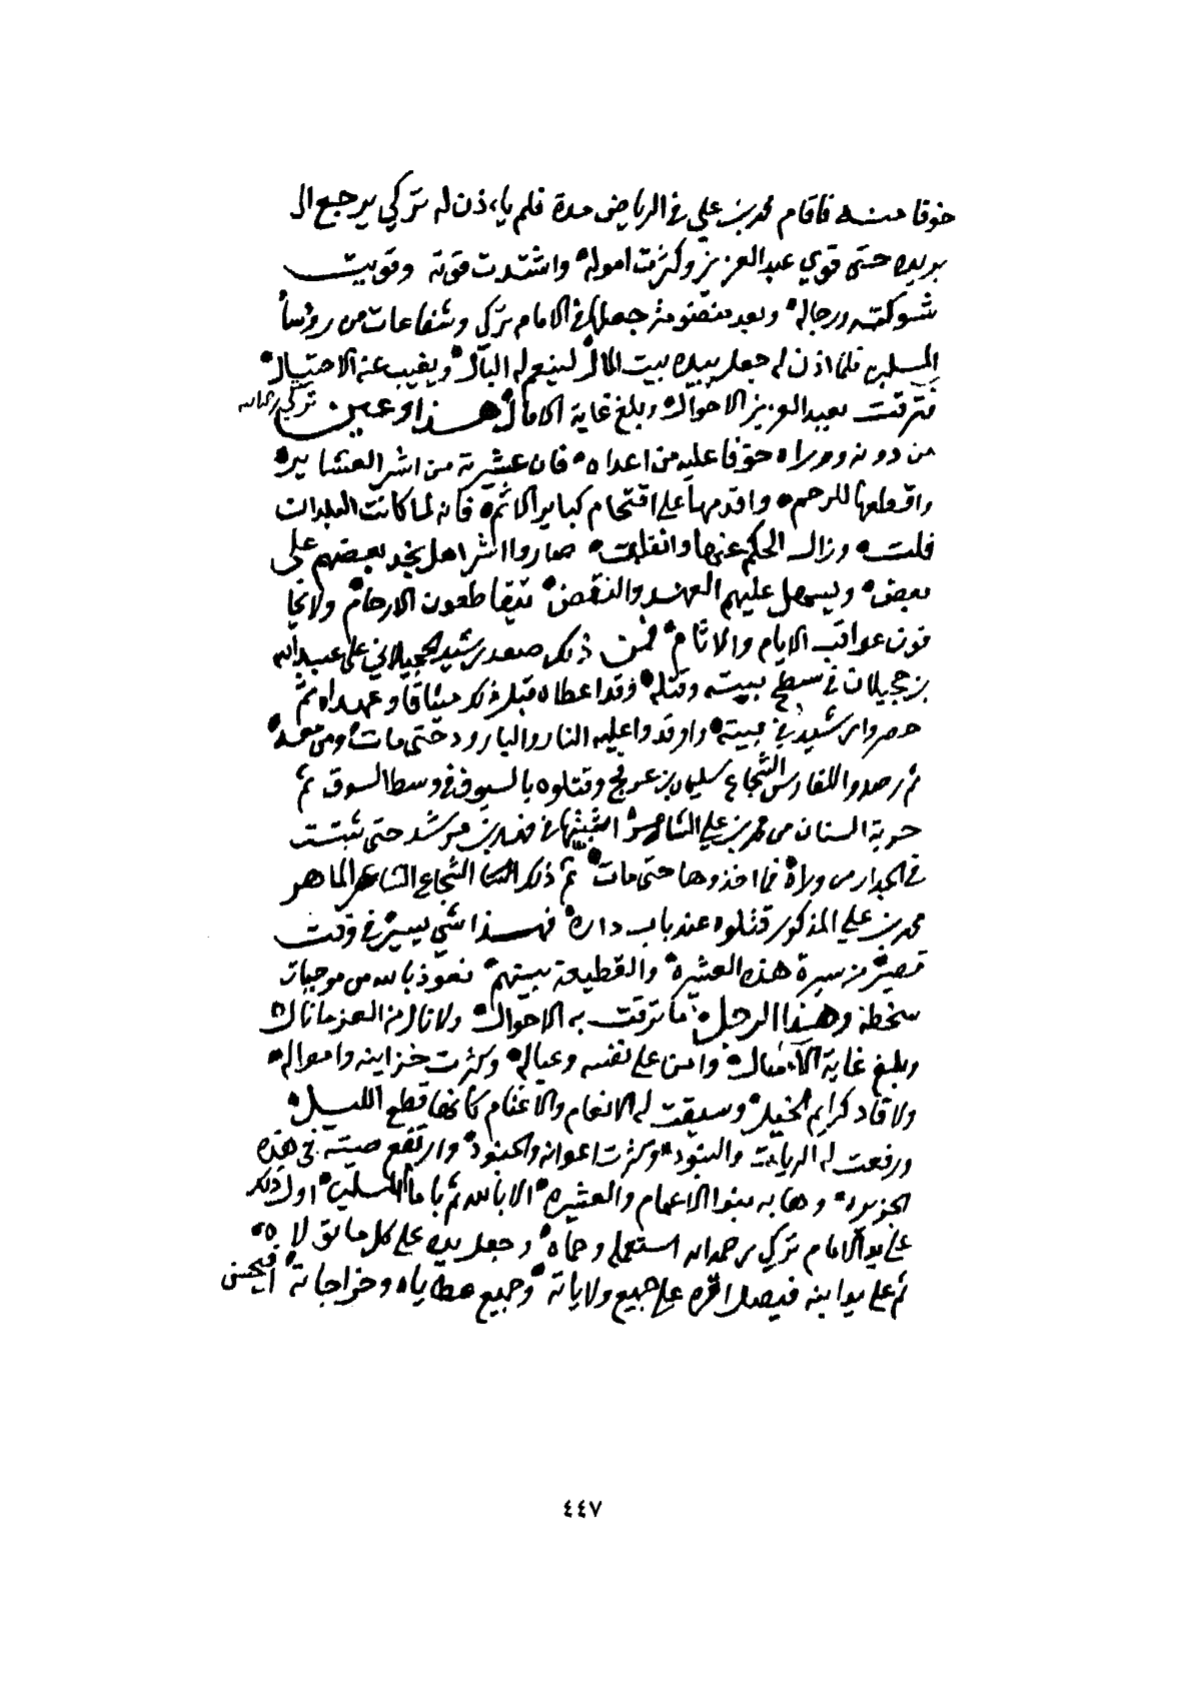 خوفا منه فاقام محمد بن علي في الرياض مدة فلم ياذن له تركي يرجع الى
بريده حتى قوي عبدالعزيز وكثرت امواله واشتدت قوته وقويت
شوكته ورجاله وبعد جعل الامام تركي وشفاعات من روسأ
المسلمين فلما اذن له جعل بيده بيت المال لينعم له البال ويغيب عنه الاحتيال
فترقت بعبدالعزيز الاحوال وبلغ غاية الامال هذا وعين تركي رحمه الله
من دونه ووراه خوفا عليه من اعداه فان عشيرته من اشر العشاير
واقطعها للرحم واقدمها على اقتحام كباير الاثم فانه لما كانت البلدان
فلت وزال الحكم عنها وانفلت صاروا اشر اهل نجد بعضهم على
بعض ويسهل عليهم العهد والنقض يتقاطعون الارحام ولا يخا
فون عواقب الايام والاثام فمن ذلك صعد رشيد الحجيلاني على عبدالله
بن حجيلان في سطح بيته وقتله وقد اعطاه قبل ذلك ميثاقا وعهدا ثم
حصروا رشيد في بيته واوقدوا عليه النار والبارود حتى مات ومن معه
ثم رصدوا للفارس الشجاع سليمان بن عرفج وقتلوه بالسيوف في وسط السوق ثم
حربة السنان من محمد بن علي الشاعر اثبتها في فهد بن مرشد حتى ثبتت
في الجدار من وراه فما اخذوها حتى مات ثم ذلك الشجاع الشاعر الماهر
محمد بن علي المذكور قتلوه عند باب داره فهذا شي يسير في وقت
قصير من سيرة هذه العشيره والقطيعة بينهم نعوذ بالله من موجبات
سخطه وهذا الرجل ما ترقت به الاحوال ولا نال من العز ما نال
وبلغ غاية الآمال وامن على نفسه وعياله وكثرت خزاينه وامواله
ولا قاد كرايم الخيل وسيقت له الانعام والاغنام كانها قطع الليل
ورفعت له الريات والبنود وكثرت اعوانه والجنود وارتفع صيته في هذه
الجزيره وهابه بنوا الاعمام والعشيره الا بالله ثم بامام المسلمين اول ذلك
على يد الامام تركي رحمه الله استعمله وحماه وجعل يده على كل ما تولاه
ثم على يد ابنه فيصل اقره على جميع ولاياته وجميع عطاياه وخراجاته افيحسن
٤٤٧